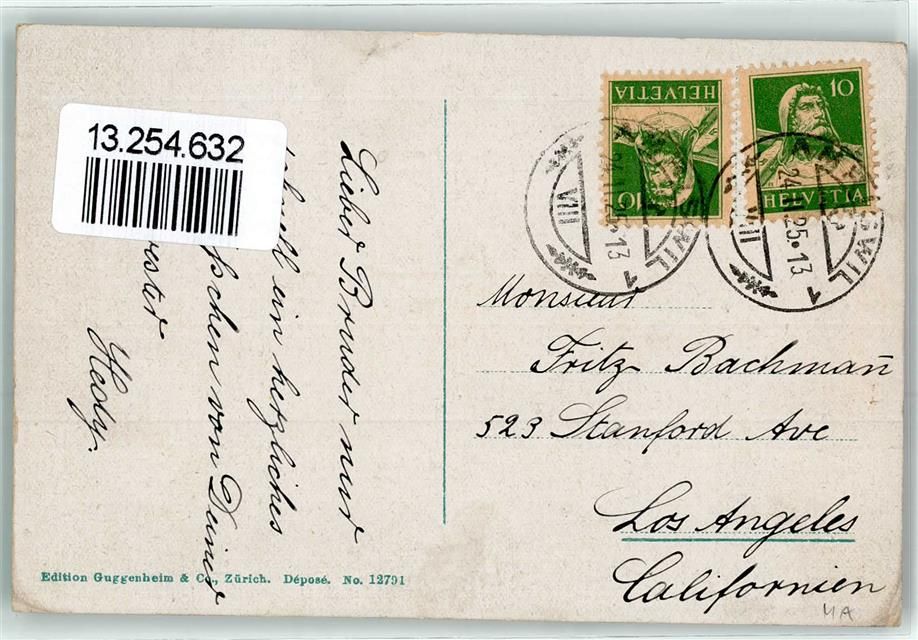 13.254.632
Lieber Bruder nur
schnell ein herzliches
von Deiner
Hedy.
HELVETIA
10
10
HELVETIA
24.II.25•13
VIII
1
24.II.25•13
VIII
1
Monsieur
Fritz Bachman̄
523 Stanford Ave
Los Angeles
Californien
Edition Guggenheim & Co., Zürich. Déposé. No. 12791